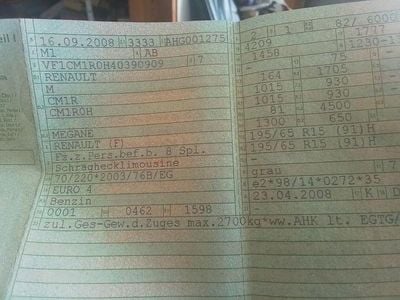 16.09.2008 3333 AHG001275
M1 AB
VF1CM1R0H40390909 7
RENAULT
M
CM1R
CM1R0H
MEGANE
RENAULT (F)
Fz.z.Pers.bef.b. 8 Spl.
Schräghecklimousine
70/220*2003/76B/EG
EURO 4
Benzin
0001 0462 1598
2 1 82/ 6000
4209 1777
1458 1230-
-
164 1705
1015 930
1015 930
81 4500
1300 650
195/65 R15 (91)H
195/65 R15 (91)H
-
grau
e2*98/14*0272*35
23.04.2008 K
zul.Ges-Gew.d.Zuges max.2700kg*ww.AHK lt. EGTG/